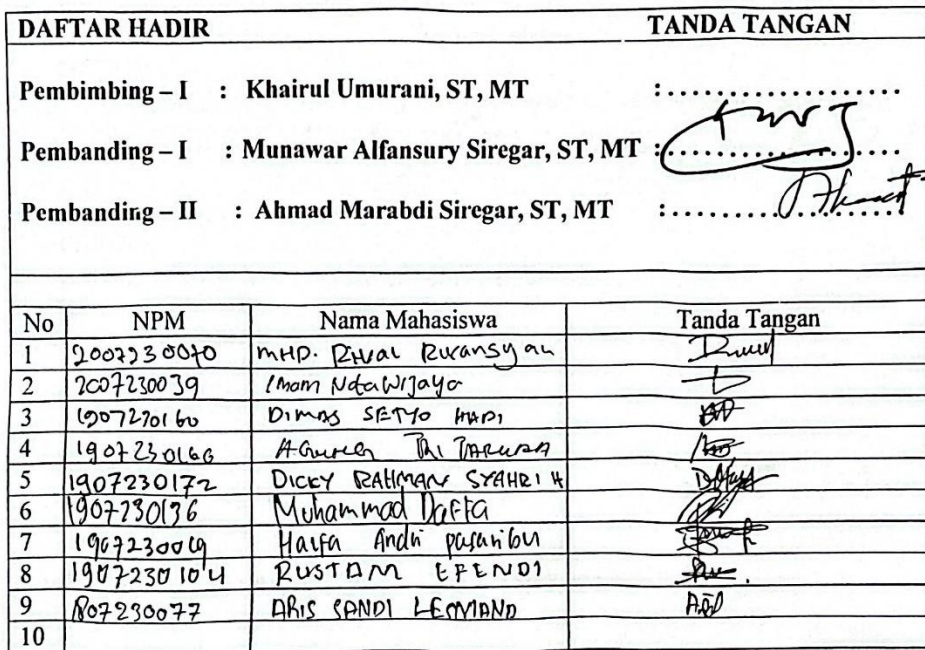 DAFTAR HADIR TANDA TANGAN
Pembimbing – I : Khairul Umurani, ST, MT :....................
Pembanding – I : Munawar Alfansury Siregar, ST, MT :....................
Pembanding – II : Ahmad Marabdi Siregar, ST, MT :....................
No NPM Nama Mahasiswa Tanda Tangan
1 2007230070 MHD.
2 2007230039 Imam Nata Wijaya
3 1907230160 DIMAS SETYO HADI
4 1907230166 TRI
5 1907230172 DICKY RAHMAN SYAHRI H
6 1907230136 Muhammad Daffa
7 Andri pasaribu
8 1907230104 RUSTAM EFENDI
9 1807230077 ARIS SANDI LESMANO
10